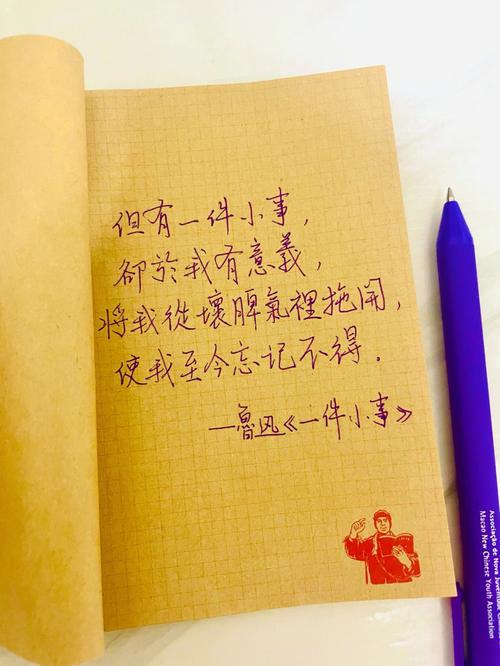 但有一件小事,
卻於我有意義,
將我從壞脾氣裡拖開,
使我至今忘记不得.
—魯迅《一件小事》
Associação de Nova Juventude
Macao New Chinese Youth Association